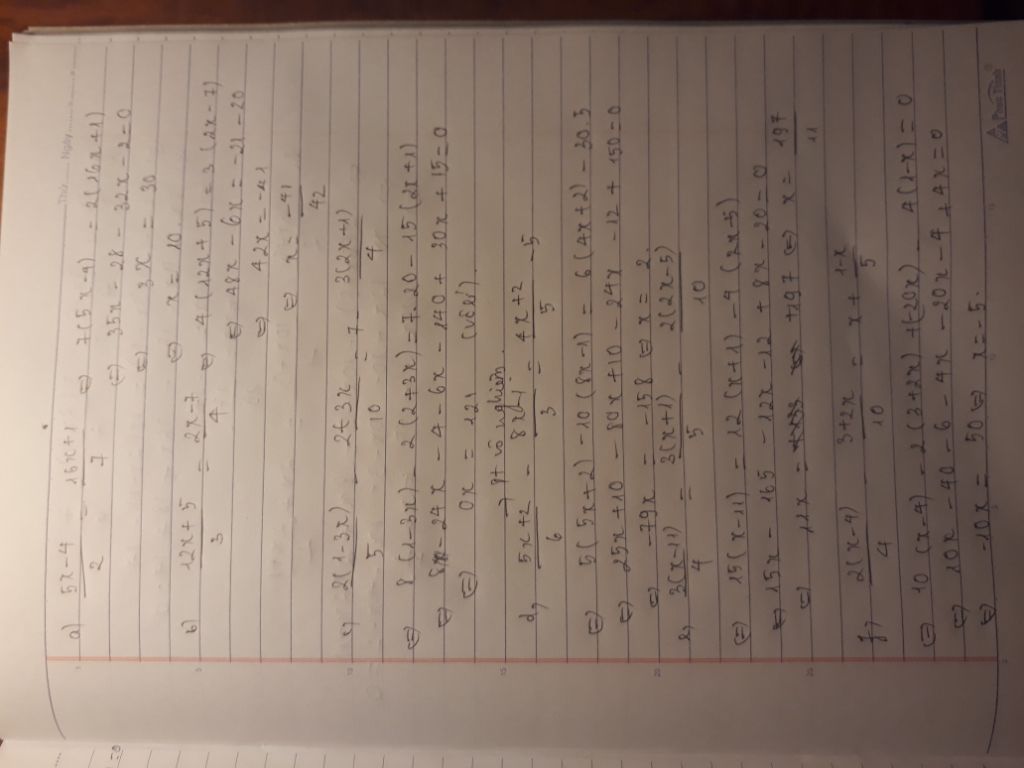 Thứ Ngày
a) (5x-4)/2 = (16x+1)/7 ⇔ 7(5x-4) = 2(16x+1)
⇔ 35x - 28 - 32x - 2 = 0
⇔ 3x = 30
⇔ x = 10
b) (12x+5)/3 = (2x-7)/4 ⇔ 4(12x+5) = 3(2x-7)
⇔ 48x - 6x = -21 - 20
⇔ 42x = -41
⇔ x = -41/42
c) 2(1-3x)/5 - (2+3x)/10 = 7 - 3(2x+1)/4
⇔ 8(1-3x) - 2(2+3x) = 7.20 - 15(2x+1)
⇔ 8 - 24x - 4 - 6x - 140 + 30x + 15 = 0
⇔ 0x = 121 (vô lí)
⇒ pt vô nghiệm
d, (5x+2)/6 - (8x-1)/3 = (4x+2)/5 - 5
⇔ 5(5x+2) - 10(8x-1) = 6(4x+2) - 30.5
⇔ 25x + 10 - 80x + 10 - 24x - 12 + 150 = 0
⇔ -79x = -158 ⇔ x = 2
e, 3(x-11)/4 = 3(x+1)/5 - 2(2x-5)/10
⇔ 15(x-11) = 12(x+1) - 4(2x-5)
⇔ 15x - 165 - 12x - 12 + 8x - 20 = 0
⇔ 11x = +197 ⇔ x = 197/11
f, 2(x-4)/4 - (3+2x)/10 = x + (1-x)/5
⇔ 10(x-4) - 2(3+2x) + (-20x) - 4(1-x) = 0
⇔ 10x - 40 - 6 - 4x - 20x - 4 + 4x = 0
⇔ -10x = 50 ⇔ x = -5.